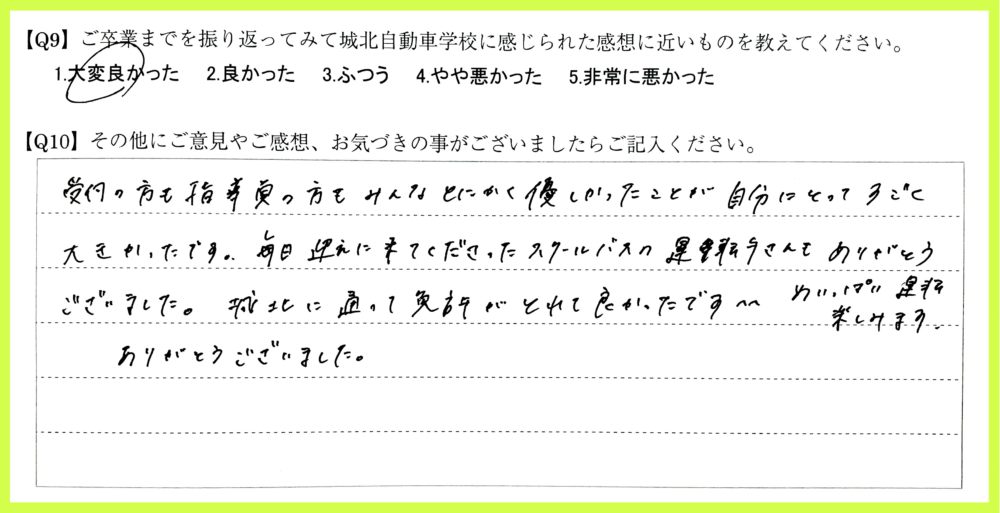 【Q9】ご卒業までを振り返ってみて城北自動車学校に感じられた感想に近いものを教えてください。
1.大変良かった 2.良かった 3.ふつう 4.やや悪かった 5.非常に悪かった
【Q10】その他にご意見やご感想、お気づきの事がございましたらご記入ください。
受付の方も指導員の方もみんなとにかく優しかったことが自分にとってすごく
大きかったです。毎日迎えに来てくださったスクールバスの運転手さんもありがとう
ございました。城北に通って免許がとれて良かったです^^
めいっぱい運転
楽しみます。
ありがとうございました。